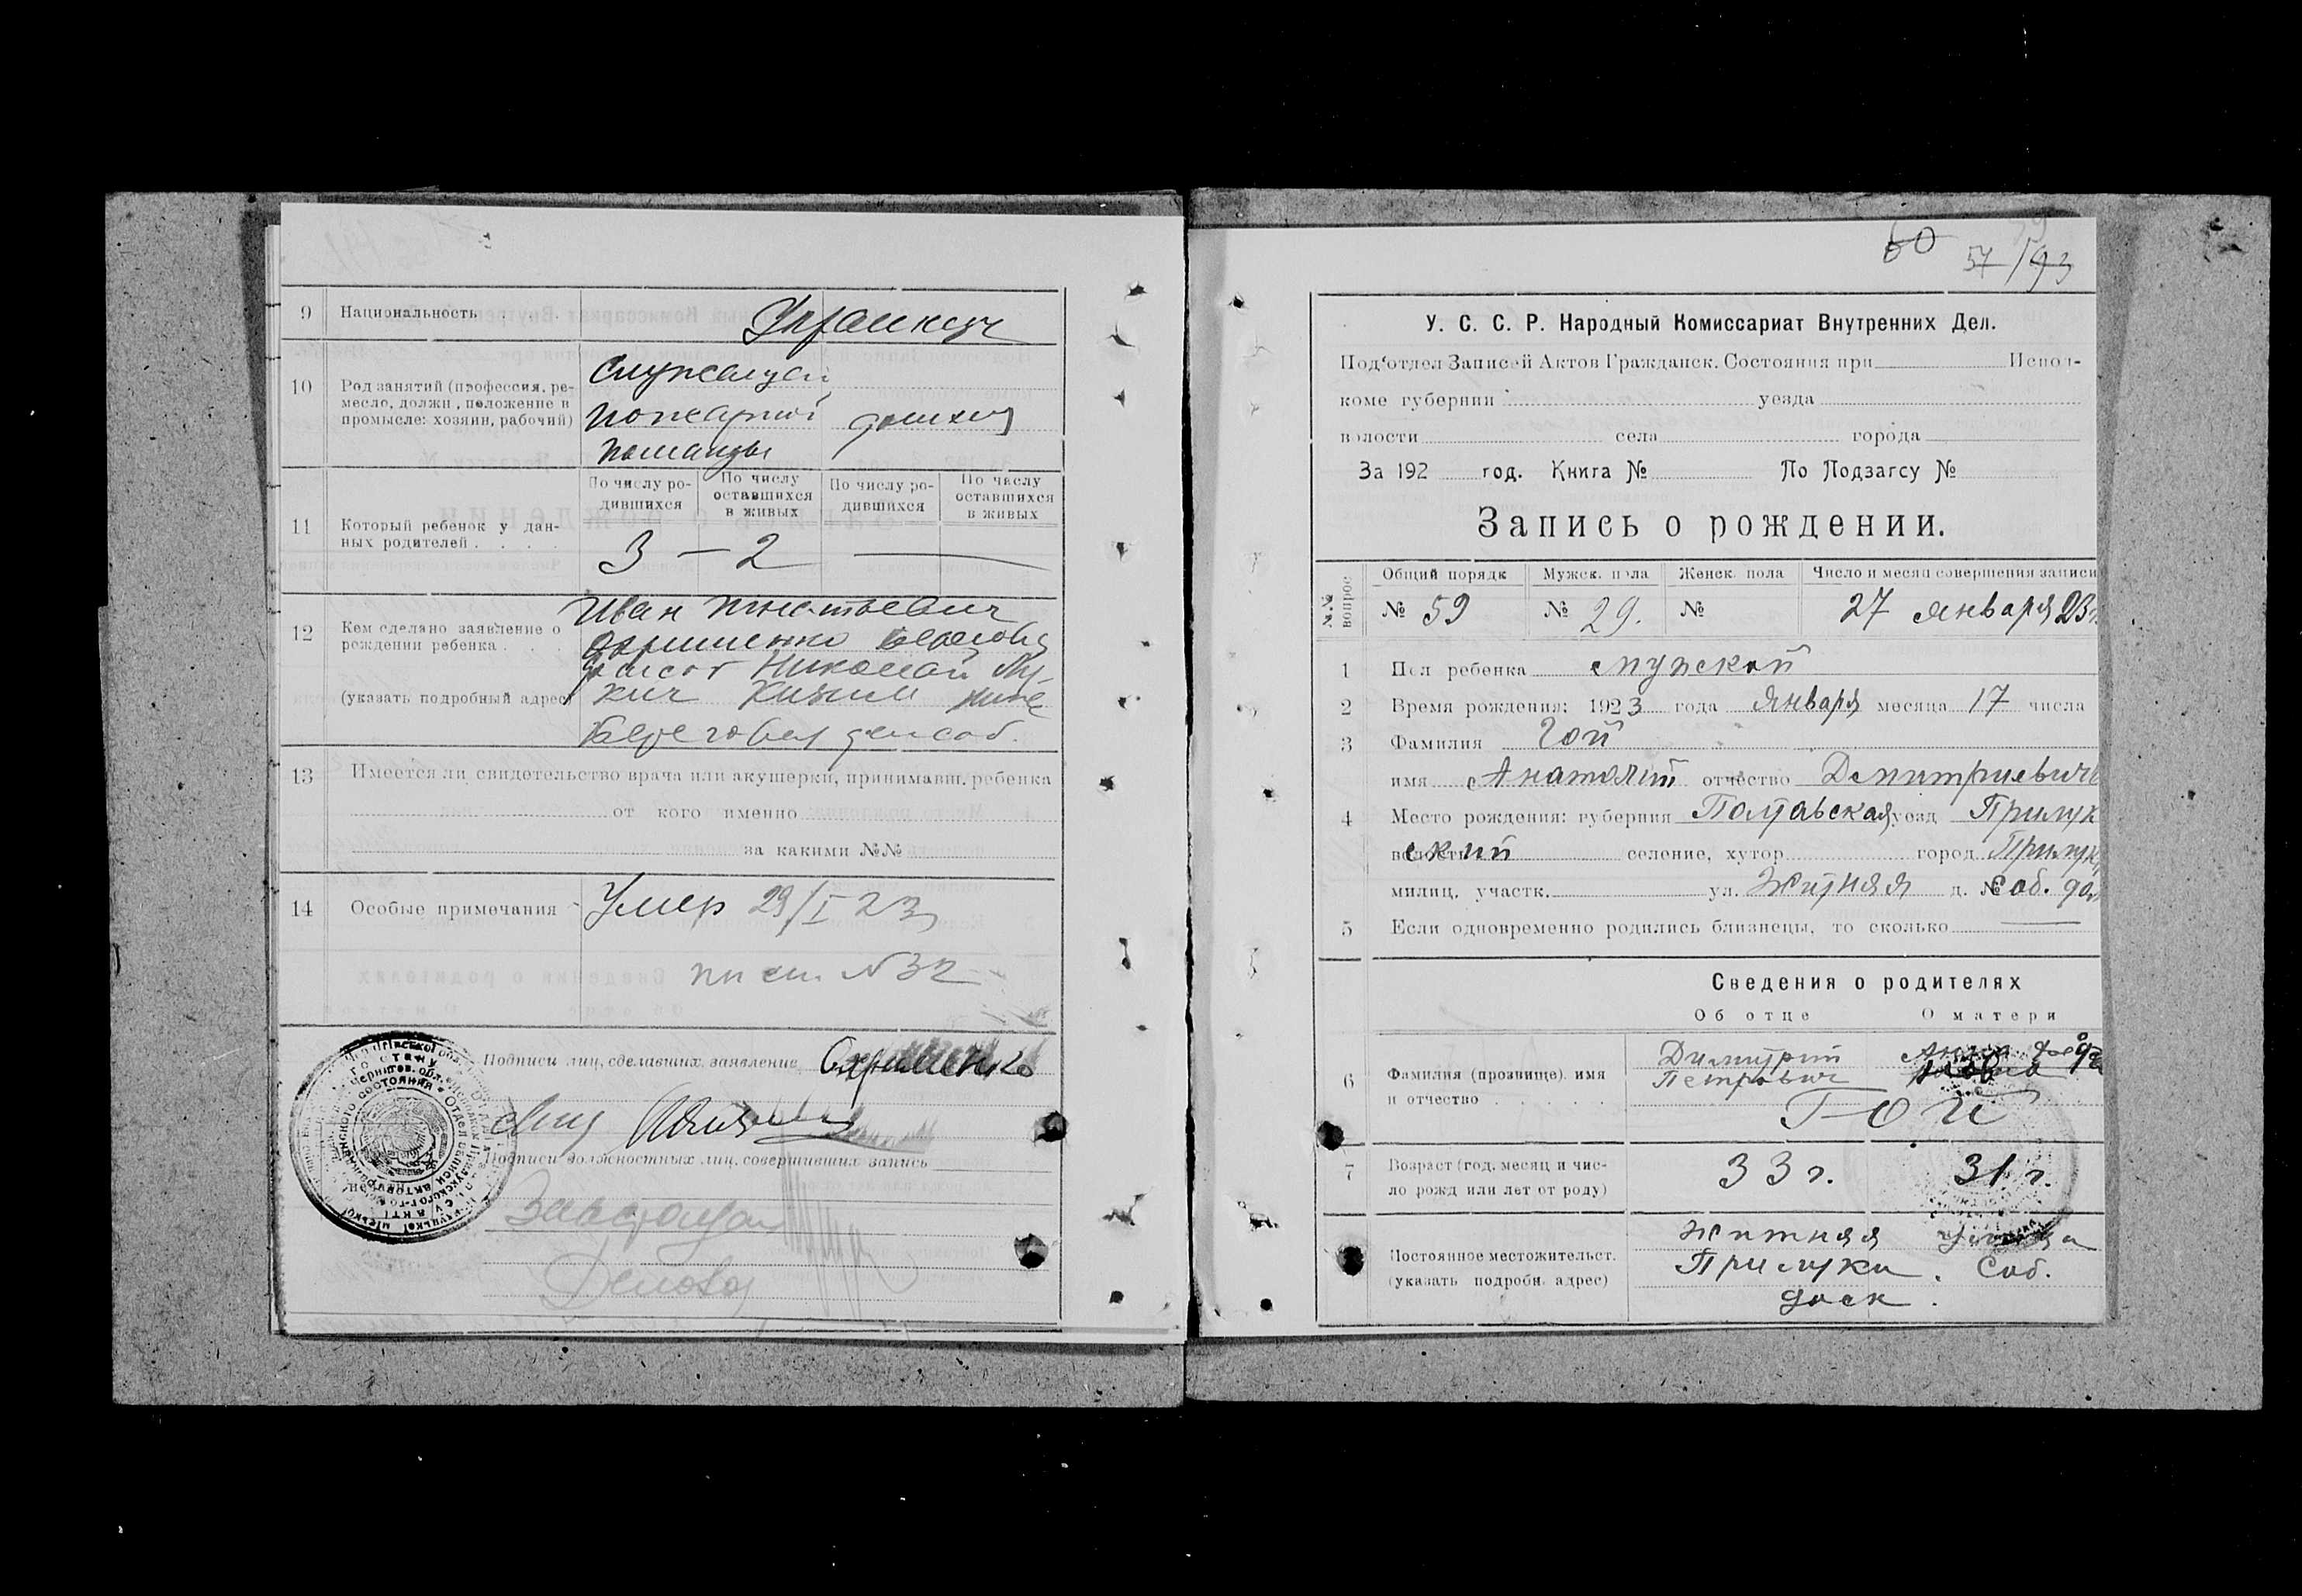 9 Национальность Украинцы
10 Род занятий (профессия, ре-
месло, должн., положение в
промысле: хозяин, рабочий)
Служащий
пожарной
команды
домхоз
11 Который ребенок у дан-
ных родителей . . . .
По числу ро-
дившихся
По числу
оставшихся
в живых
По числу ро-
дившихся
По числу
оставшихся
в живых
3 — 2 —
12 Кем сделано заявление о
рождении ребенка . . .
(указать подробный адрес)
Иван Игнатьевич
Охрименко
Николай Лу-
кич
Береговая дом соб.
13 Имеется ли свидетельство врача или акушерки, принимавш. ребенка
от кого именно
за какими №№
14 Особые примечания
Умер 29/I 23
№ 32
Подписи лиц, сделавших заявление Охрименко
Подписи должностных лиц, совершивших запись
Заведующий
60 57/93
У. С. С. Р. Народный Комиссариат Внутренних Дел.
Под'отдел Записей Актов Гражданск. Состояния при Испол-
коме губернии уезда
волости села города
За 192 год. Книга № По Подзагсу №
Запись о рождении.
№№ вопрос
Общий порядк Мужск. пола Женск. пола Число и месяц совершения записи
№ 59 № 29. № 27 января 23 г.
1 Пол ребенка мужской
2 Время рождения: 1923 года Января месяца 17 числа
3 Фамилия Гой
имя Анатолий отчество Демитриевич
4 Место рождения: губерния Полтавская уезд Прилук
волость ский селение, хутор город Прилуки
милиц. участк. ул. Житняя д. № соб. дом
5 Если одновременно родились близнецы, то сколько —
Сведения о родителях
Об отце О матери
6 Фамилия (прозвище), имя
и отчество . . . . .
Димитрий
Петрович
Анна
Гой
7 Возраст (год, месяц и чис-
ло рожд или лет от роду)
33 г. 31 г.
Постоянное местожительст.
(указать подробн. адрес)
Житняя улица
Прилуки. Соб.